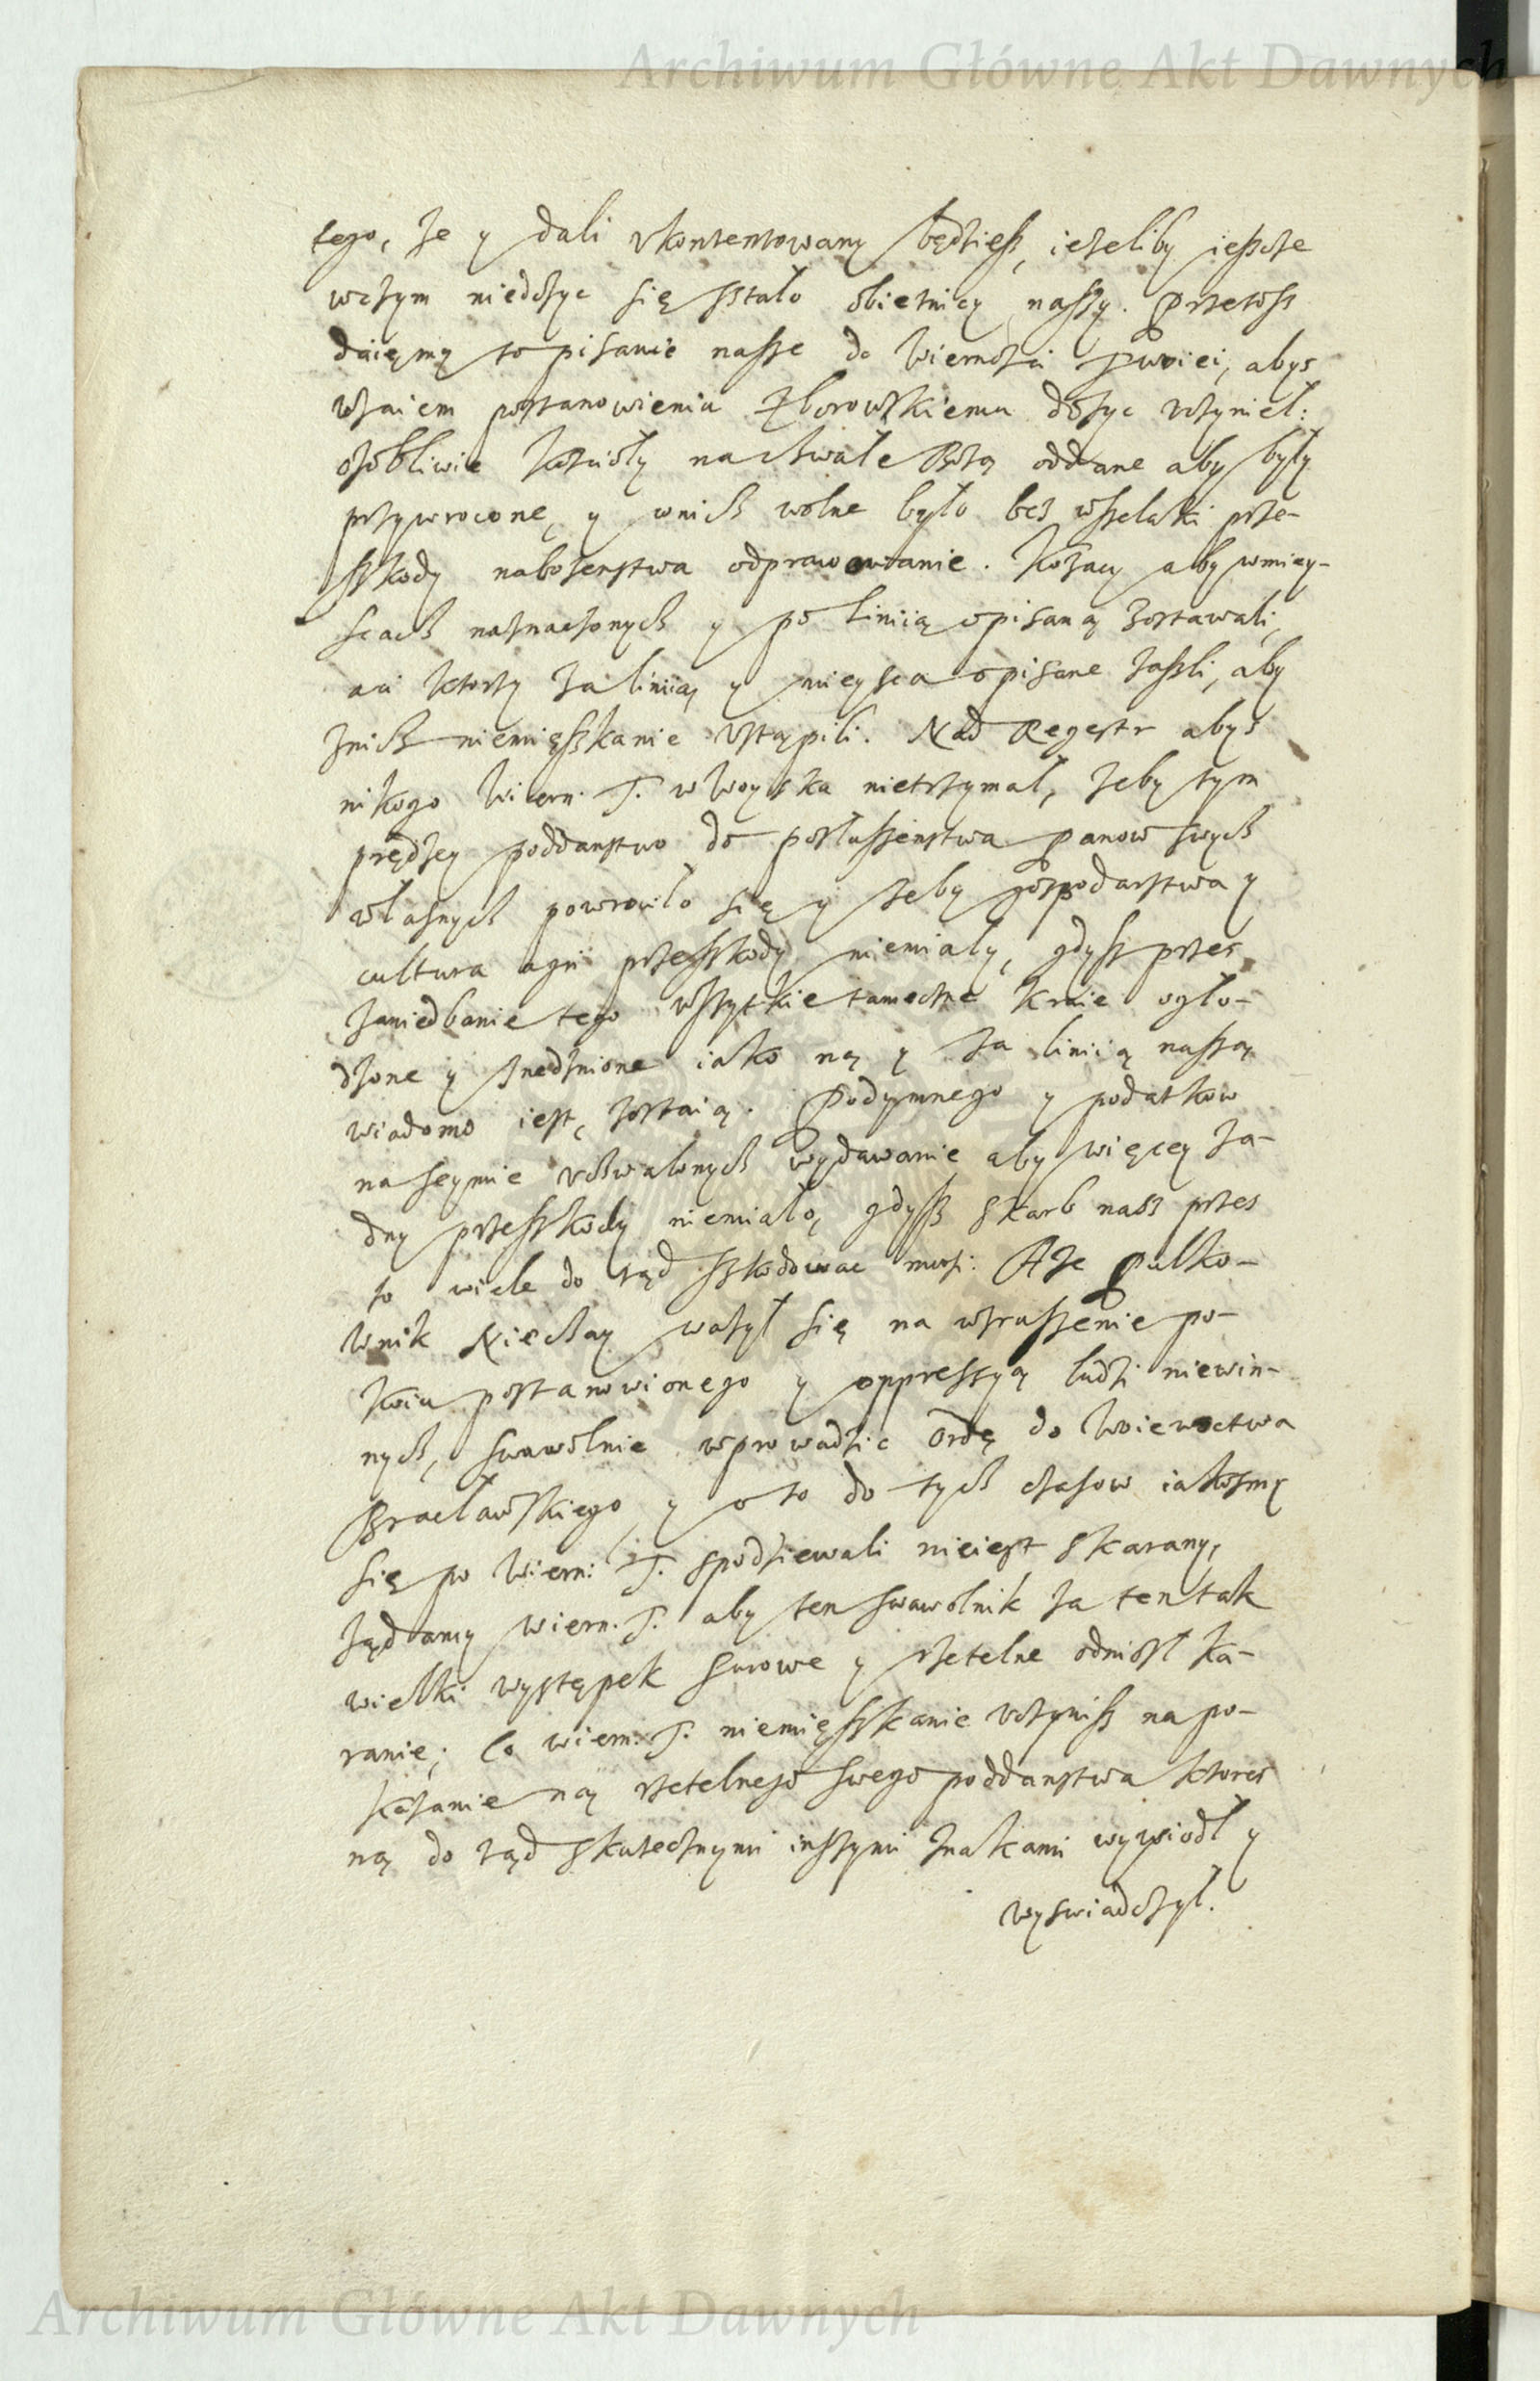 Archiwum Główne Akt Dawnych
tego, że y dali vkontentowany będziesz, ieżeliby ieszcze
wczym niedosyc się sstało obietnicy naszy. Przetosz
daięmy to pisanie nasze do Wiernosci Twoiei, abys
postanowieniu Zborowskiemu dosyc vczynieł:
osobliwie koscioły na chwałę Bożą oddane aby były
przywrocone, y wnich wolne było bes wszelaki prze-
szkody nabożenstwa odprawowanie. Kozacy aby wmiey-
scach naznaczonych y po liniią opisaną zostawali,
a ci ktorzy za liniią y mieysca opisane zaszli, aby
znich niemięszkanie vstąpili. Nad Regestr abys
nikogo Wiern. T. w Woyska nietrzymał, żeby tym
prędzey poddanstwo do posłuszenstwa Panow swych
własnych powrociło się y żeby gospodarstwa y
cultura agri przeszkody niemiały, gdysz przes
zaniedbanie tego wszytkie tameczne kraie ogło-
dzone y znedznione iako nąy za linią naszą
wiadomo iest, zostaią. Podymnego y podatkow
na seymie vchwalonych wydawanie aby więcey ża-
dny przeszkody niemiało, gdysz skarb nasz przes
to wiele do tąd szkodowac musi. A że Pulko-
wnik Nieczay ważył się na wzruszenie po-
koiu postanowionego y oppressyą ludzi niewin-
nych, swawolnie wprowadzic Ordę do Woiewoctwa
Bracławskiego, y o to do tych czasow iakosmy
się po Wiern: T. spodziewali nieiest skarany,
żądamy wiern. T. aby ten swawolnik za ten tak
wielki występek surowe y rzetelne odniosł ka-
ranie; co wiern: T. niemięszkanie vczynisz na po-
kazanie nąy rzetelnego swego poddanstwa ktores
nąy do tąd skutecznymi inszymi znakami wywiodł y
wyswiadczył.
Archiwum Główne Akt Dawnych